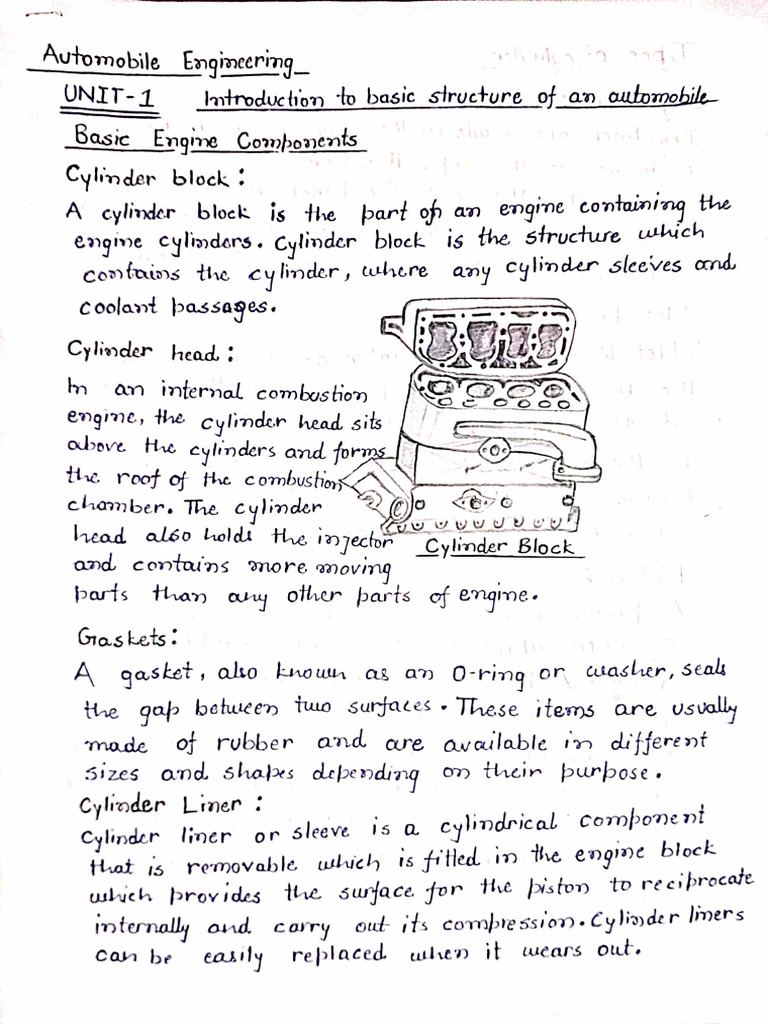 Automobile Engineering
UNIT-1 Introduction to basic structure of an automobile
Basic Engine Components
Cylinder block:
A cylinder block is the part of an engine containing the
engine cylinders. Cylinder block is the structure which
contains the cylinder, where any cylinder sleeves and
coolant passages.
Cylinder head:
In an internal combustion
engine, the cylinder head sits
above the cylinders and forms
the roof of the combustion
chamber. The cylinder
head also holds the injector
and contains more moving
parts than any other parts of engine.
Cylinder Block
Gaskets:
A gasket, also known as an O-ring or washer, seals
the gap between two surfaces. These items are usually
made of rubber and are available in different
sizes and shapes depending on their purpose.
Cylinder Liner:
Cylinder liner or sleeve is a cylindrical component
that is removable which is fitted in the engine block
which provides the surface for the piston to reciprocate
internally and carry out its compression. Cylinder liners
can be easily replaced when it wears out.